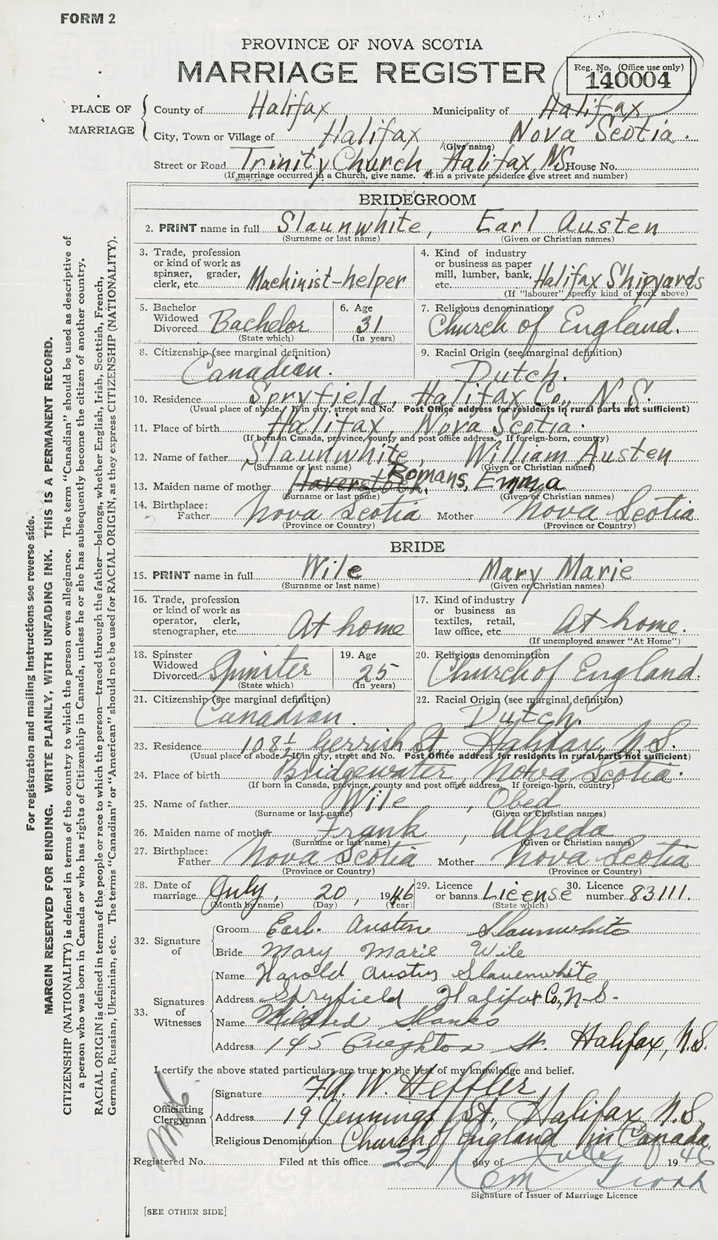 FORM 2
PROVINCE OF NOVA SCOTIA
MARRIAGE REGISTER
Reg. No. (Office use only)
140004
PLACE OF MARRIAGE
County of Halifax Municipality of Halifax
City, Town or Village of Halifax Nova Scotia.
(Give name)
Street or Road Trinity Church, Halifax, NS House No.
(If marriage occurred in a Church, give name. If in a private residence give street and number)
BRIDEGROOM
2. PRINT name in full Slaunwhite, Earl Austen
(Surname or last name) (Given or Christian names)
3. Trade, profession or kind of work as spinner, grader, clerk, etc. Machinist-helper
4. Kind of industry or business as paper mill, lumber, bank, etc. Halifax Shipyards
(If "labourer" specify kind of work above)
5. Bachelor Widowed Divorced Bachelor (State which)
6. Age 31 (In years)
7. Religious denomination Church of England.
8. Citizenship (see marginal definition) Canadian.
9. Racial Origin (see marginal definition) Dutch.
10. Residence Spryfield, Halifax Co., N.S.
(Usual place of abode. If in city, street and No. Post Office address for residents in rural parts not sufficient)
11. Place of birth Halifax, Nova Scotia.
(If born in Canada, province, county and post office address. If foreign-born, country)
12. Name of father Slaunwhite, William Austen
(Surname or last name) (Given or Christian names)
13. Maiden name of mother Haverstock, Romans, Emma
(Surname or last name) (Given or Christian names)
14. Birthplace: Father Nova Scotia Mother Nova Scotia
(Province or Country) (Province or Country)
BRIDE
15. PRINT name in full Wile Mary Marie
(Surname or last name) (Given or Christian names)
16. Trade, profession or kind of work as operator, clerk, stenographer, etc. At home
17. Kind of industry or business as textiles, retail, law office, etc. At home
(If unemployed answer "At Home")
18. Spinster Widowed Divorced Spinster (State which)
19. Age 25 (In years)
20. Religious denomination Church of England.
21. Citizenship (see marginal definition) Canadian.
22. Racial Origin (see marginal definition) Dutch.
23. Residence 108½ Gerrish St. Halifax, N.S.
(Usual place of abode. If in city, street and No. Post Office address for residents in rural parts not sufficient)
24. Place of birth Bridgewater, Nova Scotia.
(If born in Canada, province, county and post office address. If foreign-born, country)
25. Name of father Wile, Obed
(Surname or last name) (Given or Christian names)
26. Maiden name of mother Frank, Alfreda
(Surname or last name) (Given or Christian names)
27. Birthplace: Father Nova Scotia Mother Nova Scotia
(Province or Country) (Province or Country)
28. Date of marriage July, 20, 1946
(Month by name) (Day) (Year)
29. Licence or banns License (State which)
30. Licence number 83111.
32. Signature of
Groom Earl Austen Slaunwhite
Bride Mary Marie Wile
33. Signatures of Witnesses
Name Harold Austin Slauenwhite
Address Spryfield Halifax Co., N-S-
Name Mildred
Address 145 Creighton St. Halifax, N.S.
I certify the above stated particulars are true to the best of my knowledge and belief.
Officiating Clergyman
Signature W. Heffler
Address 19 Jennings St., Halifax N.S.
Religious Denomination Church of England in Canada
Registered No. Filed at this office 22 day of July 1946
Signature of Issuer of Marriage Licence
[SEE OTHER SIDE]
For registration and mailing instructions see reverse side.
MARGIN RESERVED FOR BINDING. WRITE PLAINLY, WITH UNFADING INK. THIS IS A PERMANENT RECORD.
CITIZENSHIP (NATIONALITY) is defined in terms of the country to which the person owes allegiance. The term "Canadian" should be used as descriptive of
a person who was born in Canada or who has rights of Citizenship in Canada, unless he or she has subsequently become the citizen of another country.
RACIAL ORIGIN is defined in terms of the people or race to which the person—traced through the father—belongs, whether English, Irish, Scottish, French,
German, Russian, Ukrainian, etc. The terms "Canadian" or "American" should not be used for RACIAL ORIGIN, as they express CITIZENSHIP (NATIONALITY).